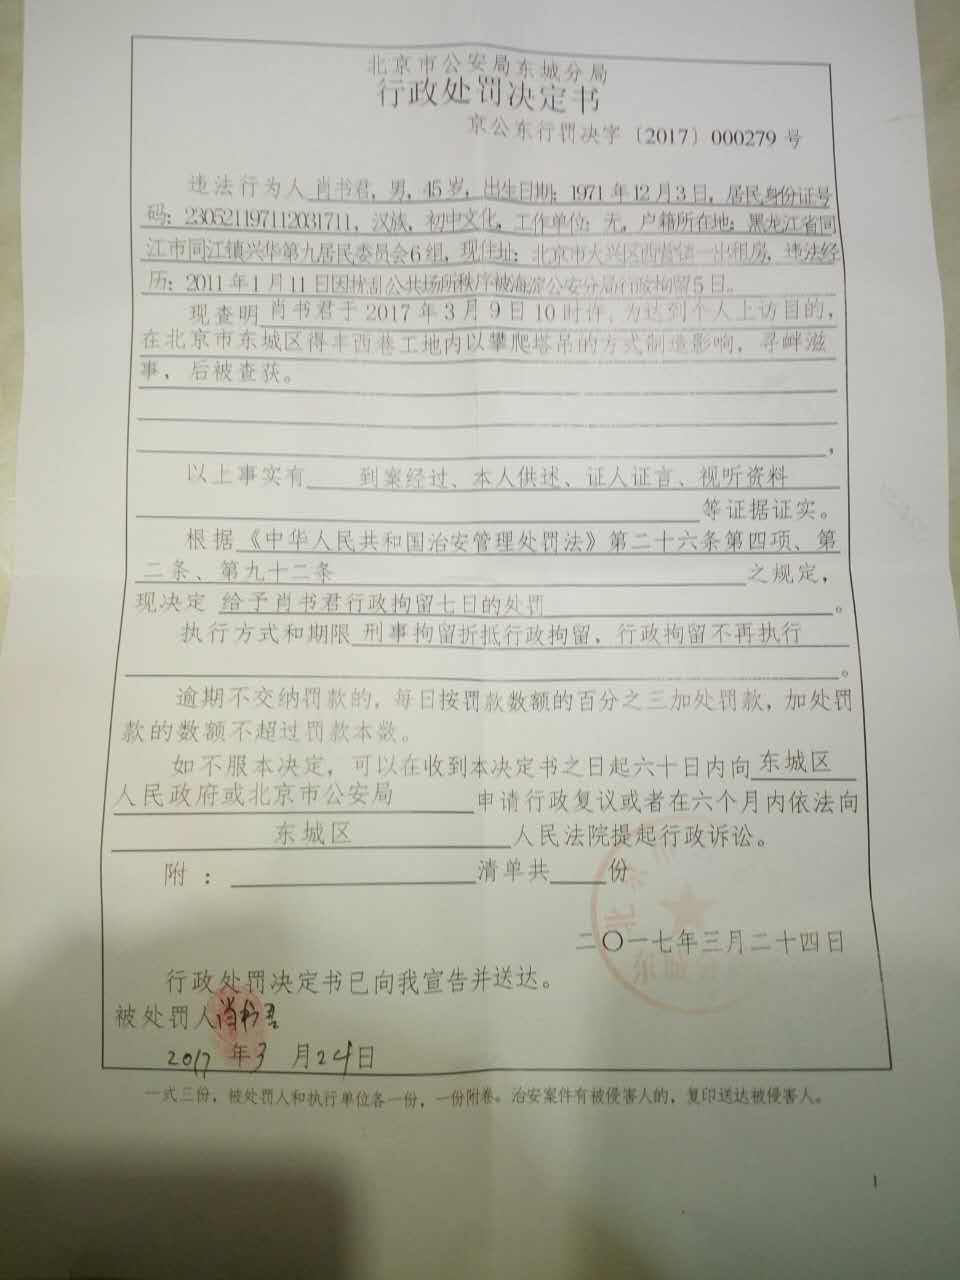 北京市公安局东城分局
行政处罚决定书
京公东行罚决字〔2017〕000279号
违法行为人肖书君，男，45岁，出生日期：1971年12月3日，居民身份证号
码：230521197112031711，汉族，初中文化，工作单位：无，户籍所在地：黑龙江省同
江市同江镇兴华第九居民委员会6组，现住址：北京市大兴区西营镇一出租房，违法经
历：2011年1月11日因扰乱公共场所秩序被海淀公安分局行政拘留5日。
现查明肖书君于2017年3月9日10时许，为达到个人上访目的，
在北京市东城区得丰西巷工地内以攀爬塔吊的方式制造影响，寻衅滋
事，后被查获。
，
以上事实有 到案经过、本人供述、证人证言、视听资料
等证据证实。
根据《中华人民共和国治安管理处罚法》第二十六条第四项、第
二条、第九十二条 之规定，
现决定 给予肖书君行政拘留七日的处罚 。
执行方式和期限 刑事拘留折抵行政拘留，行政拘留不再执行
。
逾期不交纳罚款的，每日按罚款数额的百分之三加处罚款，加处罚
款的数额不超过罚款本数。
如不服本决定，可以在收到本决定书之日起六十日内向 东城区
人民政府或北京市公安局 申请行政复议或者在六个月内依法向
东城区 人民法院提起行政诉讼。
附： 清单共 份
二〇一七年三月二十四日
行政处罚决定书已向我宣告并送达。
被处罚人 肖书君
2017 年 3 月 24 日
一式三份，被处罚人和执行单位各一份，一份附卷。治安案件有被侵害人的，复印送达被侵害人。
1